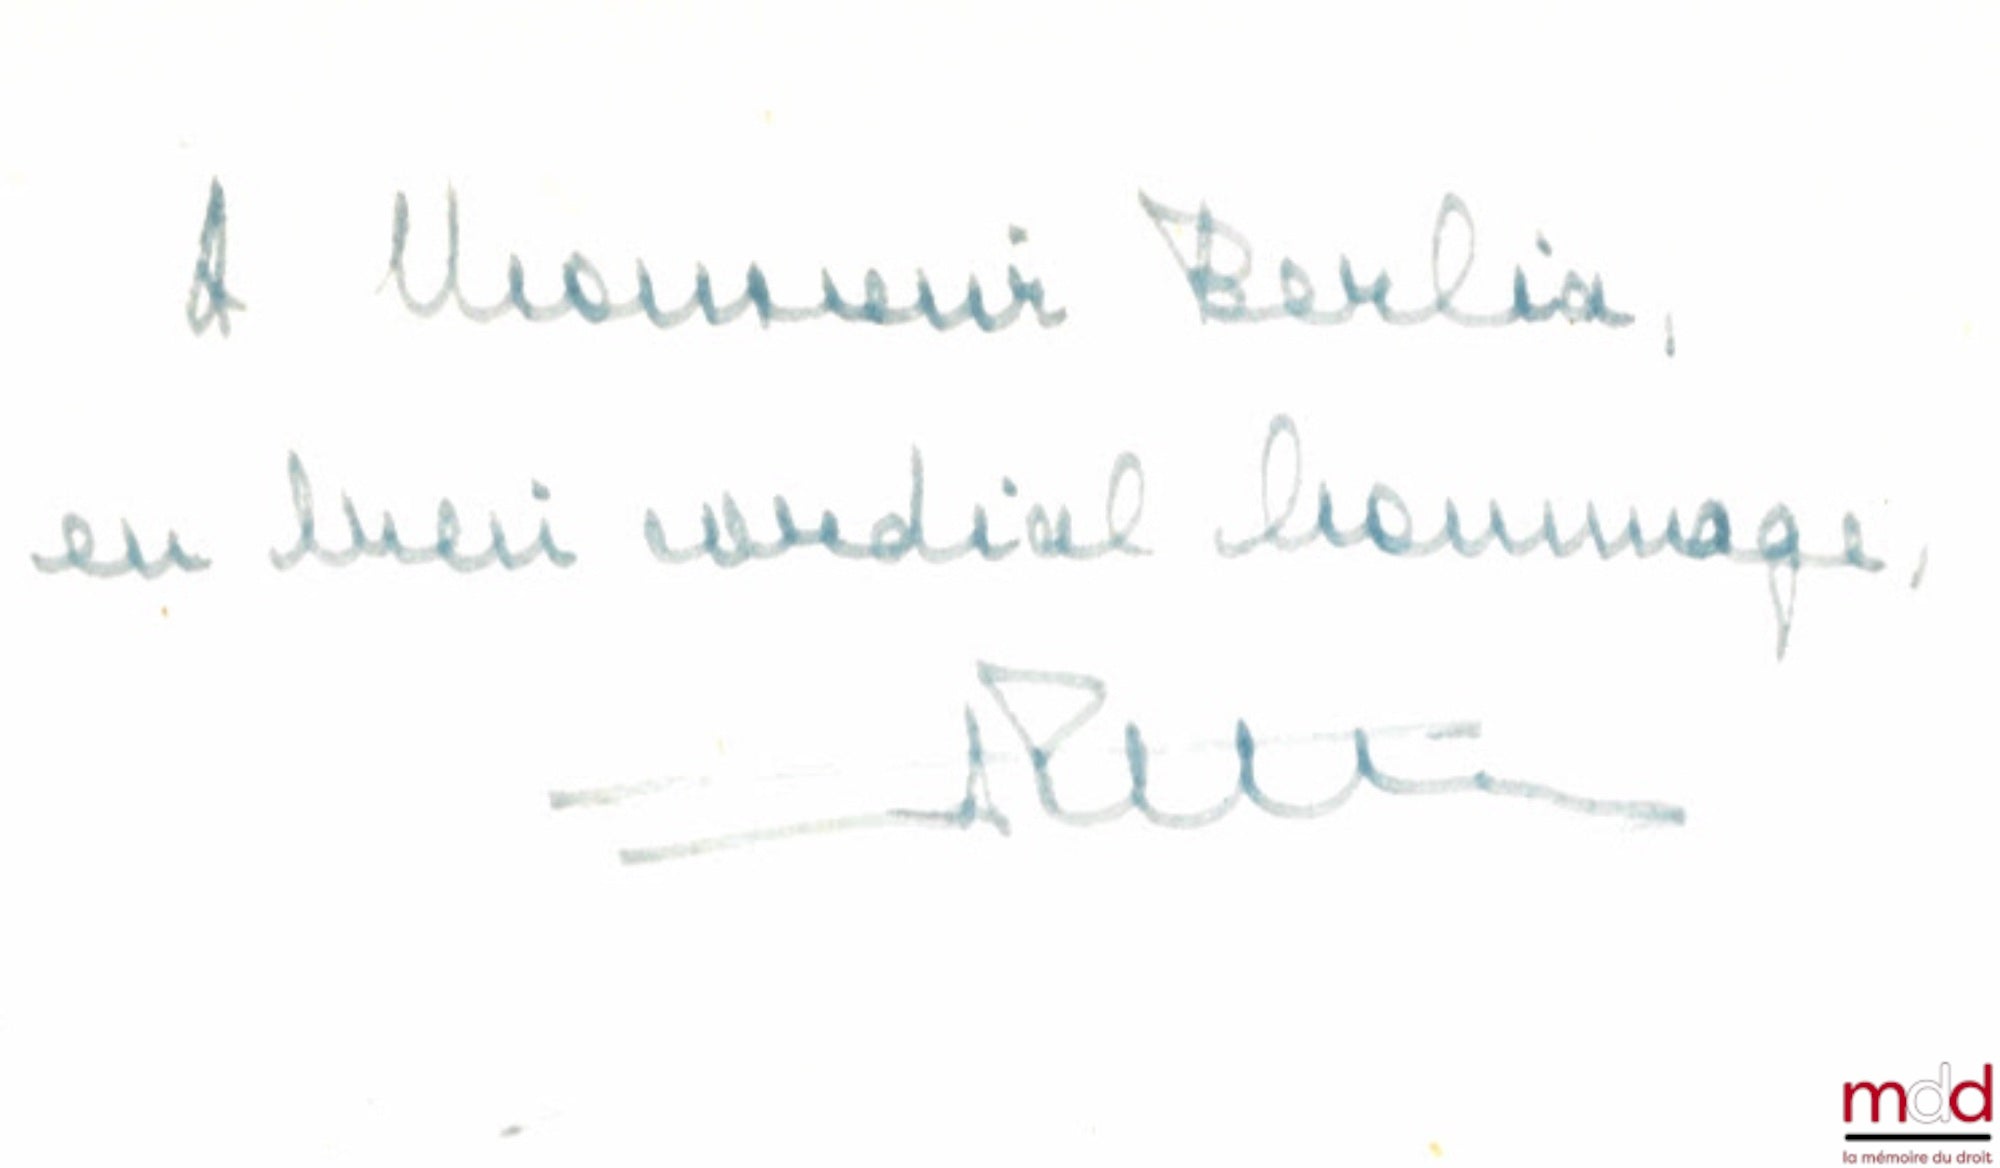 A Monsieur Berlia,
en bien cordial hommage,
mdd
la mémoire du droit